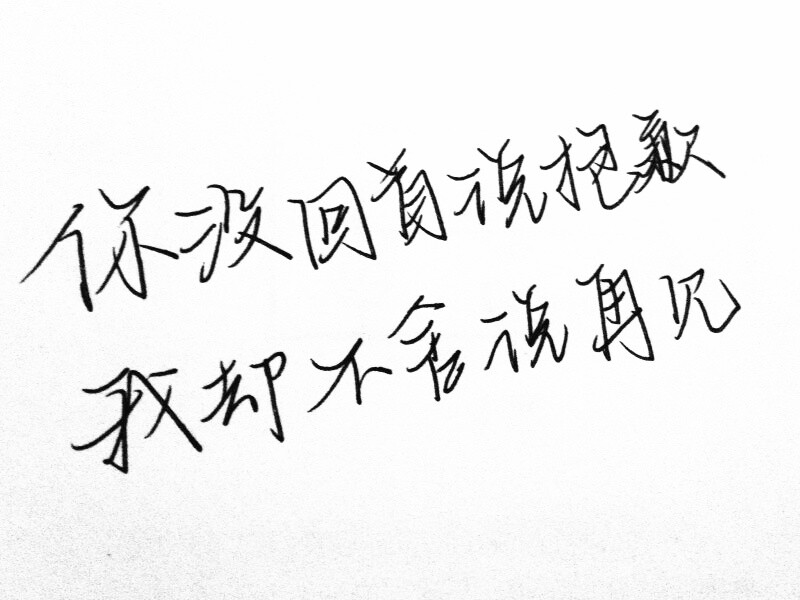 你没回首说抱歉
我却不舍说再见